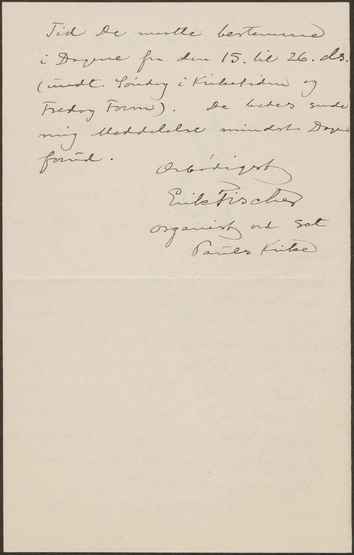 Tid De maatte bestemme
i Dagene fra den 15. til 26. ds.
(undt. Søndag i Kirketiden og
Fredag Form). De bedes sende
mig Meddelelse mindst Dagen
forud.
Ærbødigst
Erik Fischer
organist ved Sct
Pauls Kirke